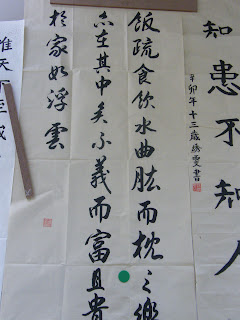 知患不知人
辛卯年十三歲雯書
飯疏食飲水曲肱而枕之樂
亦在其中矣不義而富且貴
於家如浮雲
惟天下至誠